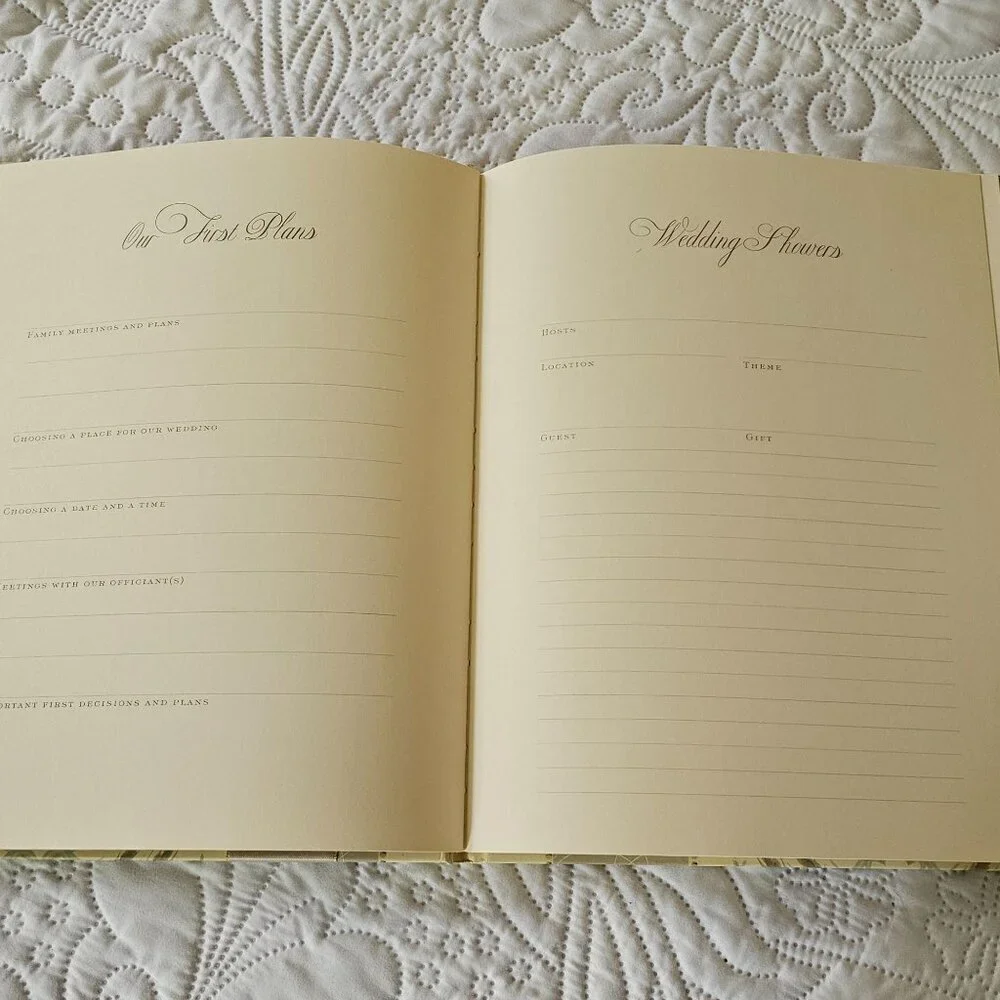 Our First Plans
FAMILY MEETINGS AND PLANS
CHOOSING A PLACE FOR OUR WEDDING
CHOOSING A DATE AND A TIME
EETINGS WITH OUR OFFICIANT(S)
ORTANT FIRST DECISIONS AND PLANS
Wedding Showers
HOSTS
LOCATION THEME
GUEST GIFT